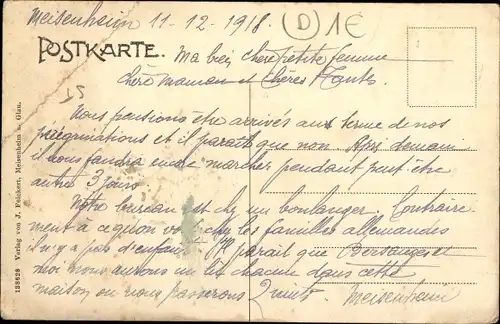 Meisenheim 11-12-1918. (D) 1€
POSTKARTE. Ma bien chère petite femme
chère maman et chères Tantes
15
Nous pensions être arrivés au terme de nos
pérégrinations et il paraît que non. Après demain
il nous faudra encore marcher pendant peut être
autre 3 jours.
Notre bureau est chez un boulanger. Contraire-
ment à ce qu'on voit chez les familles allemandes
il n'y a pas d'enfants. Il paraît que et
moi nous aurons un lit chacune dans cette
maison où nous passerons 2 nuits. Meisenheim
138628 Verlag von J. Feickert, Meisenheim a. Glan.